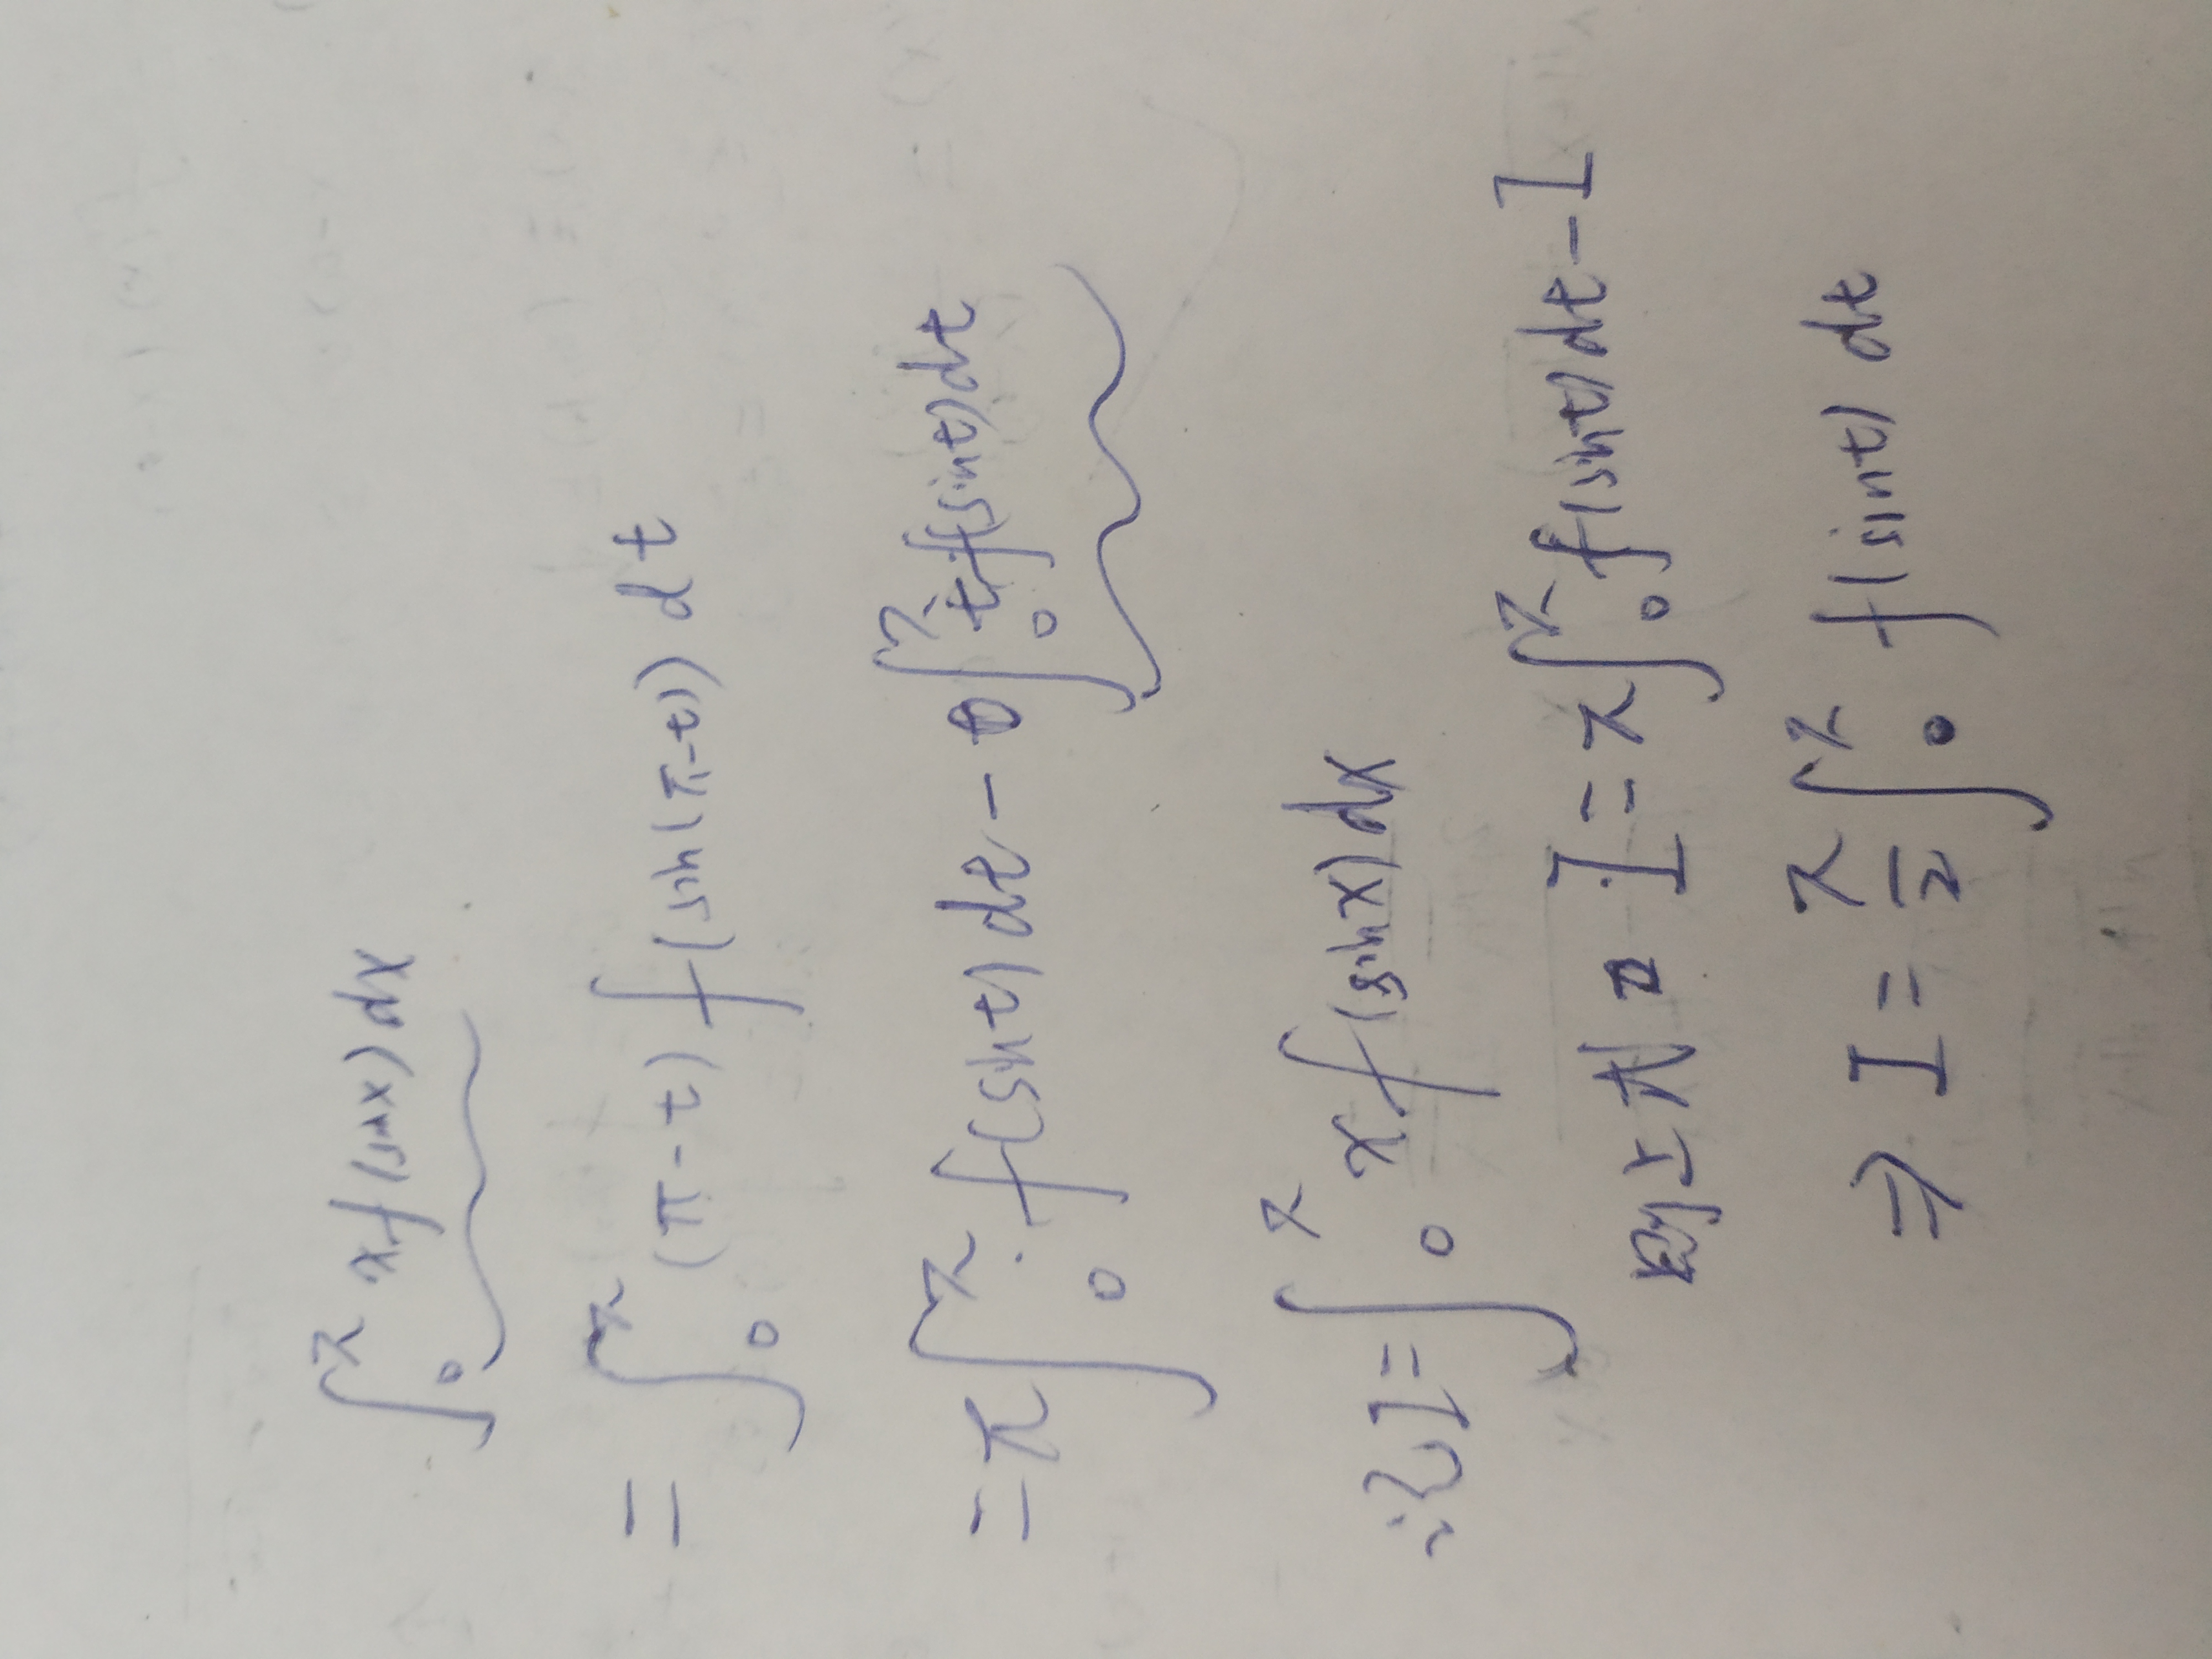 ∫₀^π x f(sinx) dx
= ∫₀^π (π-t) f(sin(π-t)) dt
= π ∫₀^π f(sint) dt - ∫₀^π t f(sint) dt
记 I = ∫₀^π x f(sinx) dx
则上式 I = π ∫₀^π f(sint) dt - I
⇒ I = π/2 ∫₀^π f(sint) dt